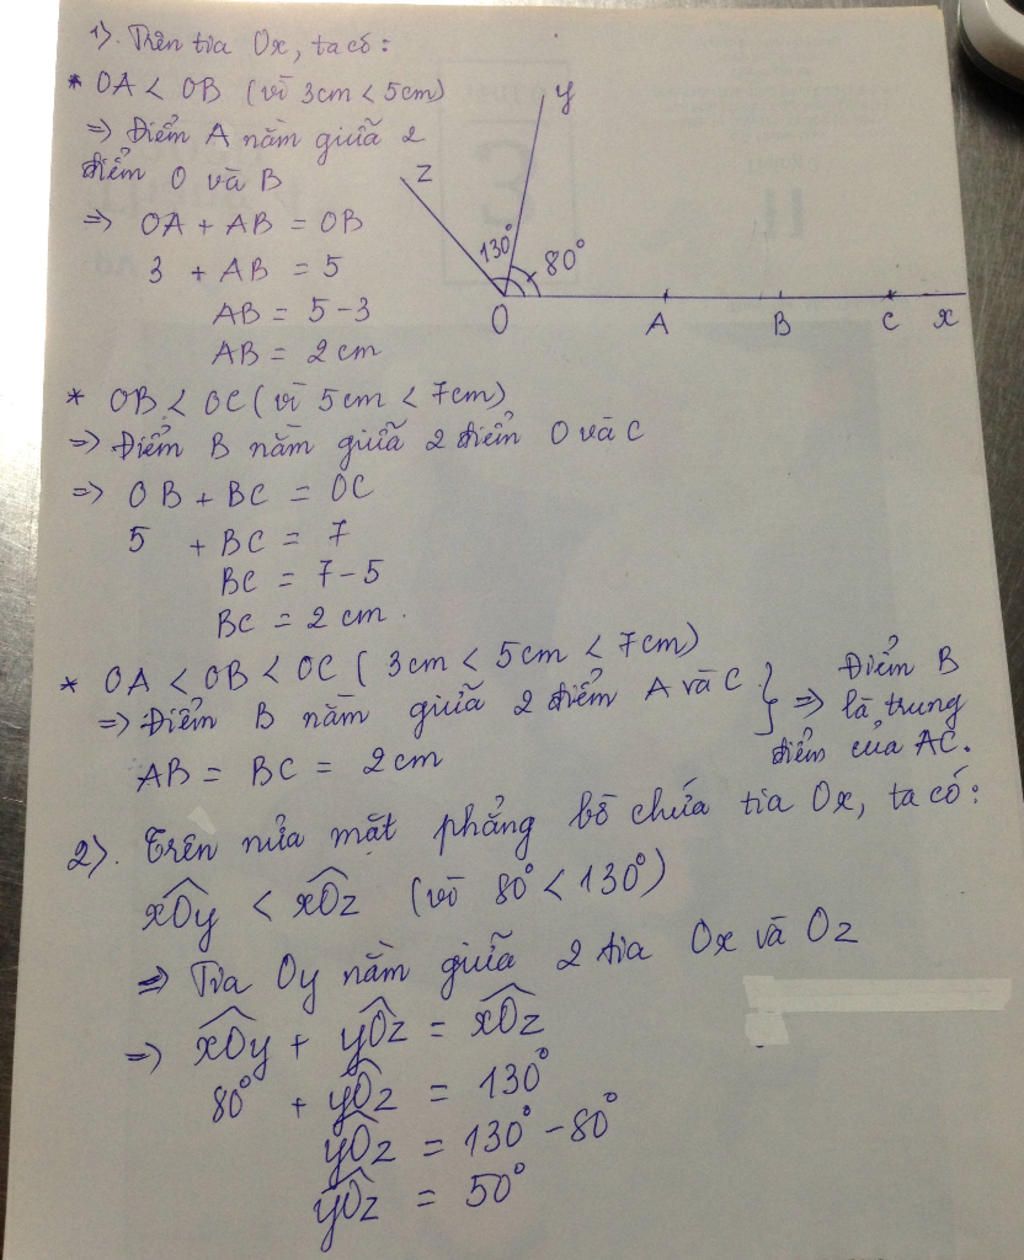 1). Trên tia Ox, ta có:
* OA < OB (vì 3cm < 5cm)
=> Điểm A nằm giữa 2
điểm O và B
=> OA + AB = OB
3 + AB = 5
AB = 5 - 3
AB = 2 cm
y
z
130°
80°
O A B C x
* OB < OC (vì 5cm < 7cm)
=> Điểm B nằm giữa 2 điểm O và C
=> OB + BC = OC
5 + BC = 7
BC = 7 - 5
BC = 2 cm.
* OA < OB < OC ( 3cm < 5cm < 7cm)
=> Điểm B nằm giữa 2 điểm A và C } => Điểm B
là trung
AB = BC = 2cm điểm của AC.
2). Trên nửa mặt phẳng bờ chứa tia Ox, ta có:
xÔy < xÔz (vì 80° < 130°)
=> Tia Oy nằm giữa 2 tia Ox và Oz
=> xÔy + yÔz = xÔz
80° + yÔz = 130°
yÔz = 130° - 80°
yÔz = 50°